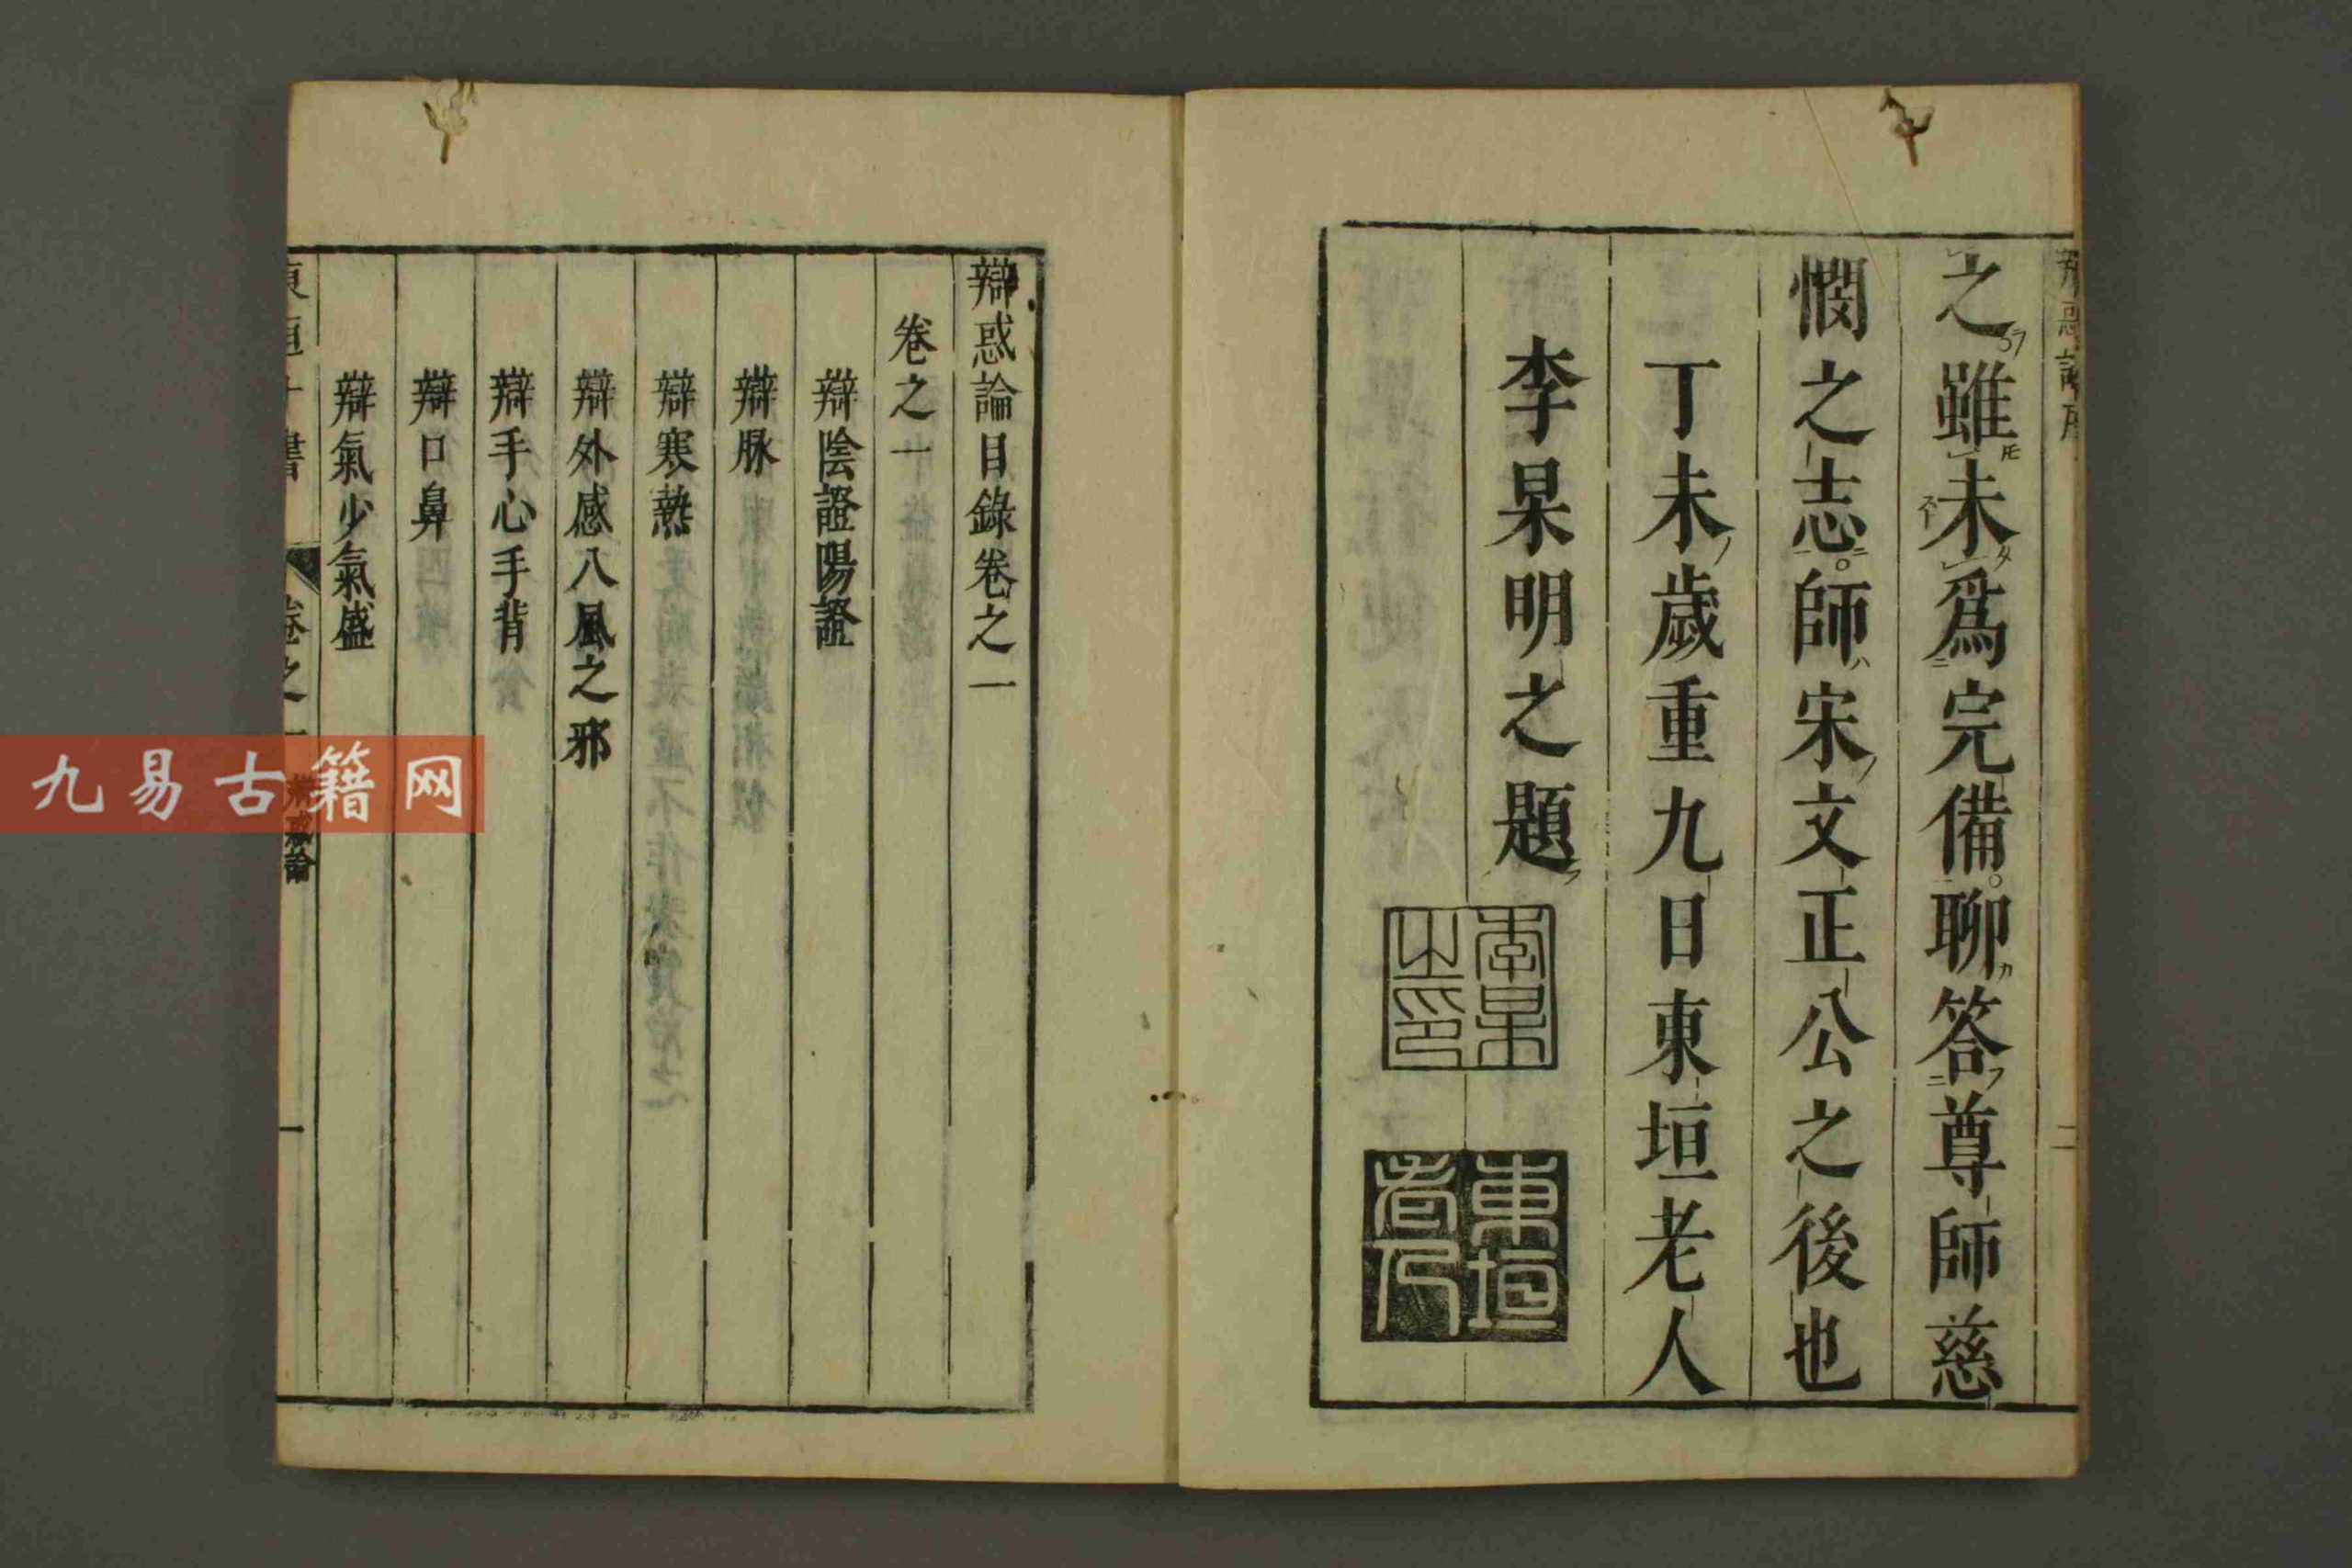 之雖未爲完備。聊答尊師慈
憫之志。師宋文正公之後也
丁未歲重九日東垣老人
李杲明之題
李杲
之印
東垣
老人
辯惑論目錄卷之一
卷之一
辯陰證陽證
辯脉
辯寒熱
辯外感八風之邪
辯手心手背
辯口鼻
辯氣少氣盛
東垣十書 卷之一 辯惑論 一
九易古籍网